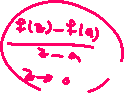 f(z)-f(a)
z-a
z→a